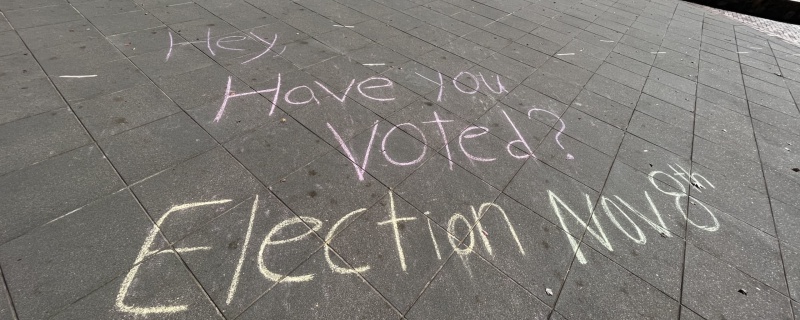 Hey,
Have you
Voted?
Election Nov 8th